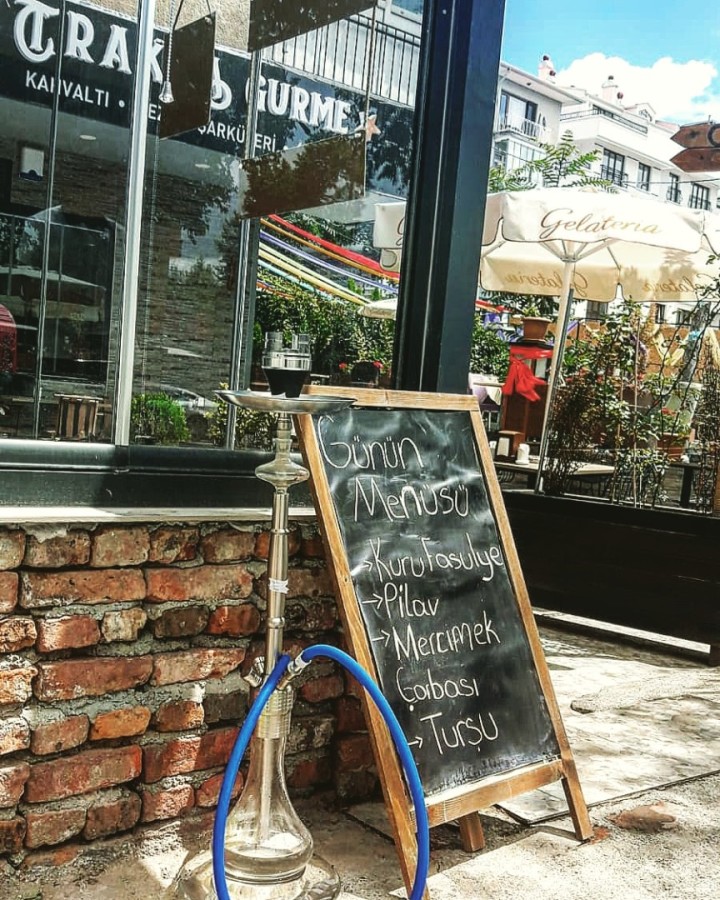 TRAKYA GURME
KAHVALTI • MEZE • ŞARKÜTERİ
Gelateria
Gelateria
Günün
Menüsü
→Kuru Fasulye
→Pilav
→Mercimek
Çorbası
→Turşu